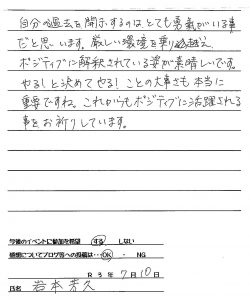 自分の過去を開示するのはとても勇気がいる事
だと思います。厳しい環境を乗り越え
ポジティブに解釈されている姿が素晴しいです。
やる!と決めてやる!ことの大事さも本当に
重要ですね。これからもポジティブに活躍される
事をお祈りしています。
今後のイベントに参加を希望 する しない
感想についてブログ等への投稿は…OK ・ NG
R3年7月10日
氏名 岩本芳久